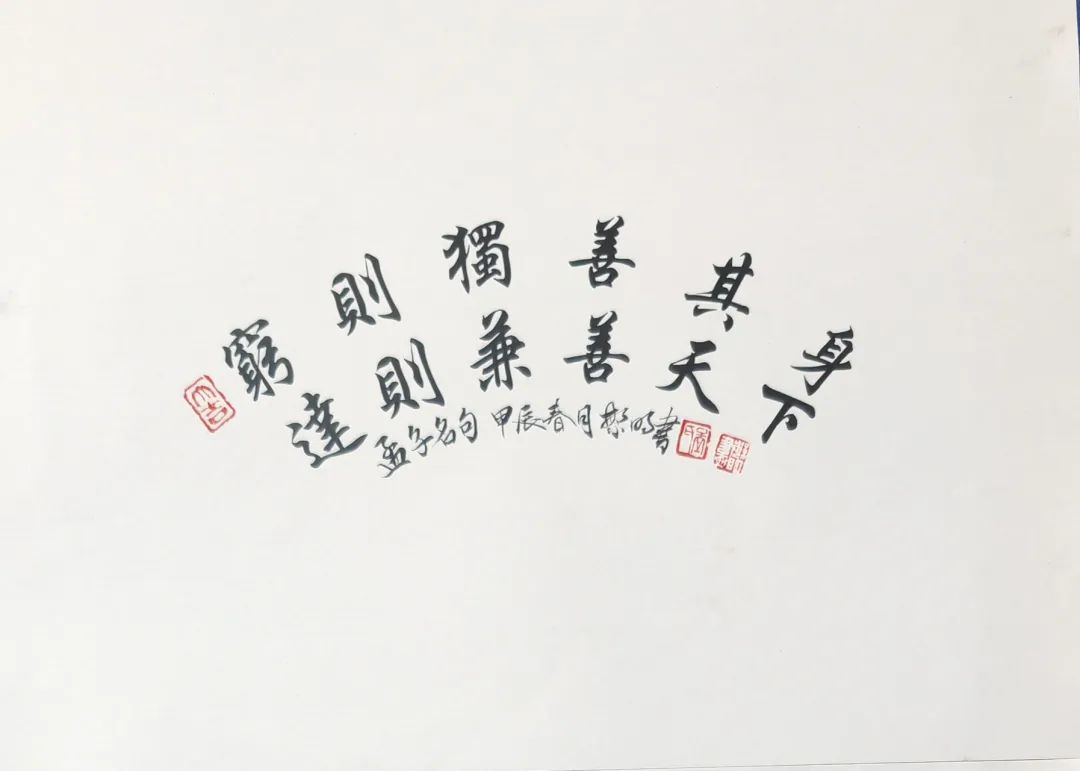 窮則獨善其身
達則兼善天下
孟子名句 甲辰春月 明書